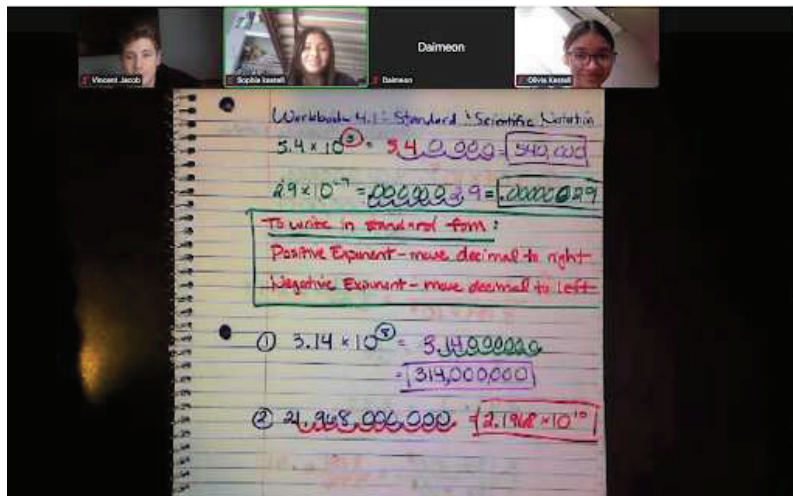 Vincent Jacob
Sophia
Daimeon
Daimeon
Olivia
Workbook 4.1: Standard & Scientific Notation
5.4 × 10⁵ = 5.40,000 = 540,000
2.9 × 10⁻⁷ = .00000029 = .00000029
To write in standard form:
Positive Exponent - move decimal to right
Negative Exponent - move decimal to left
① 3.14 × 10⁸ = 3.14000000
= 314,000,000
② 21,968,000,000 = 2.1968 × 10¹⁰